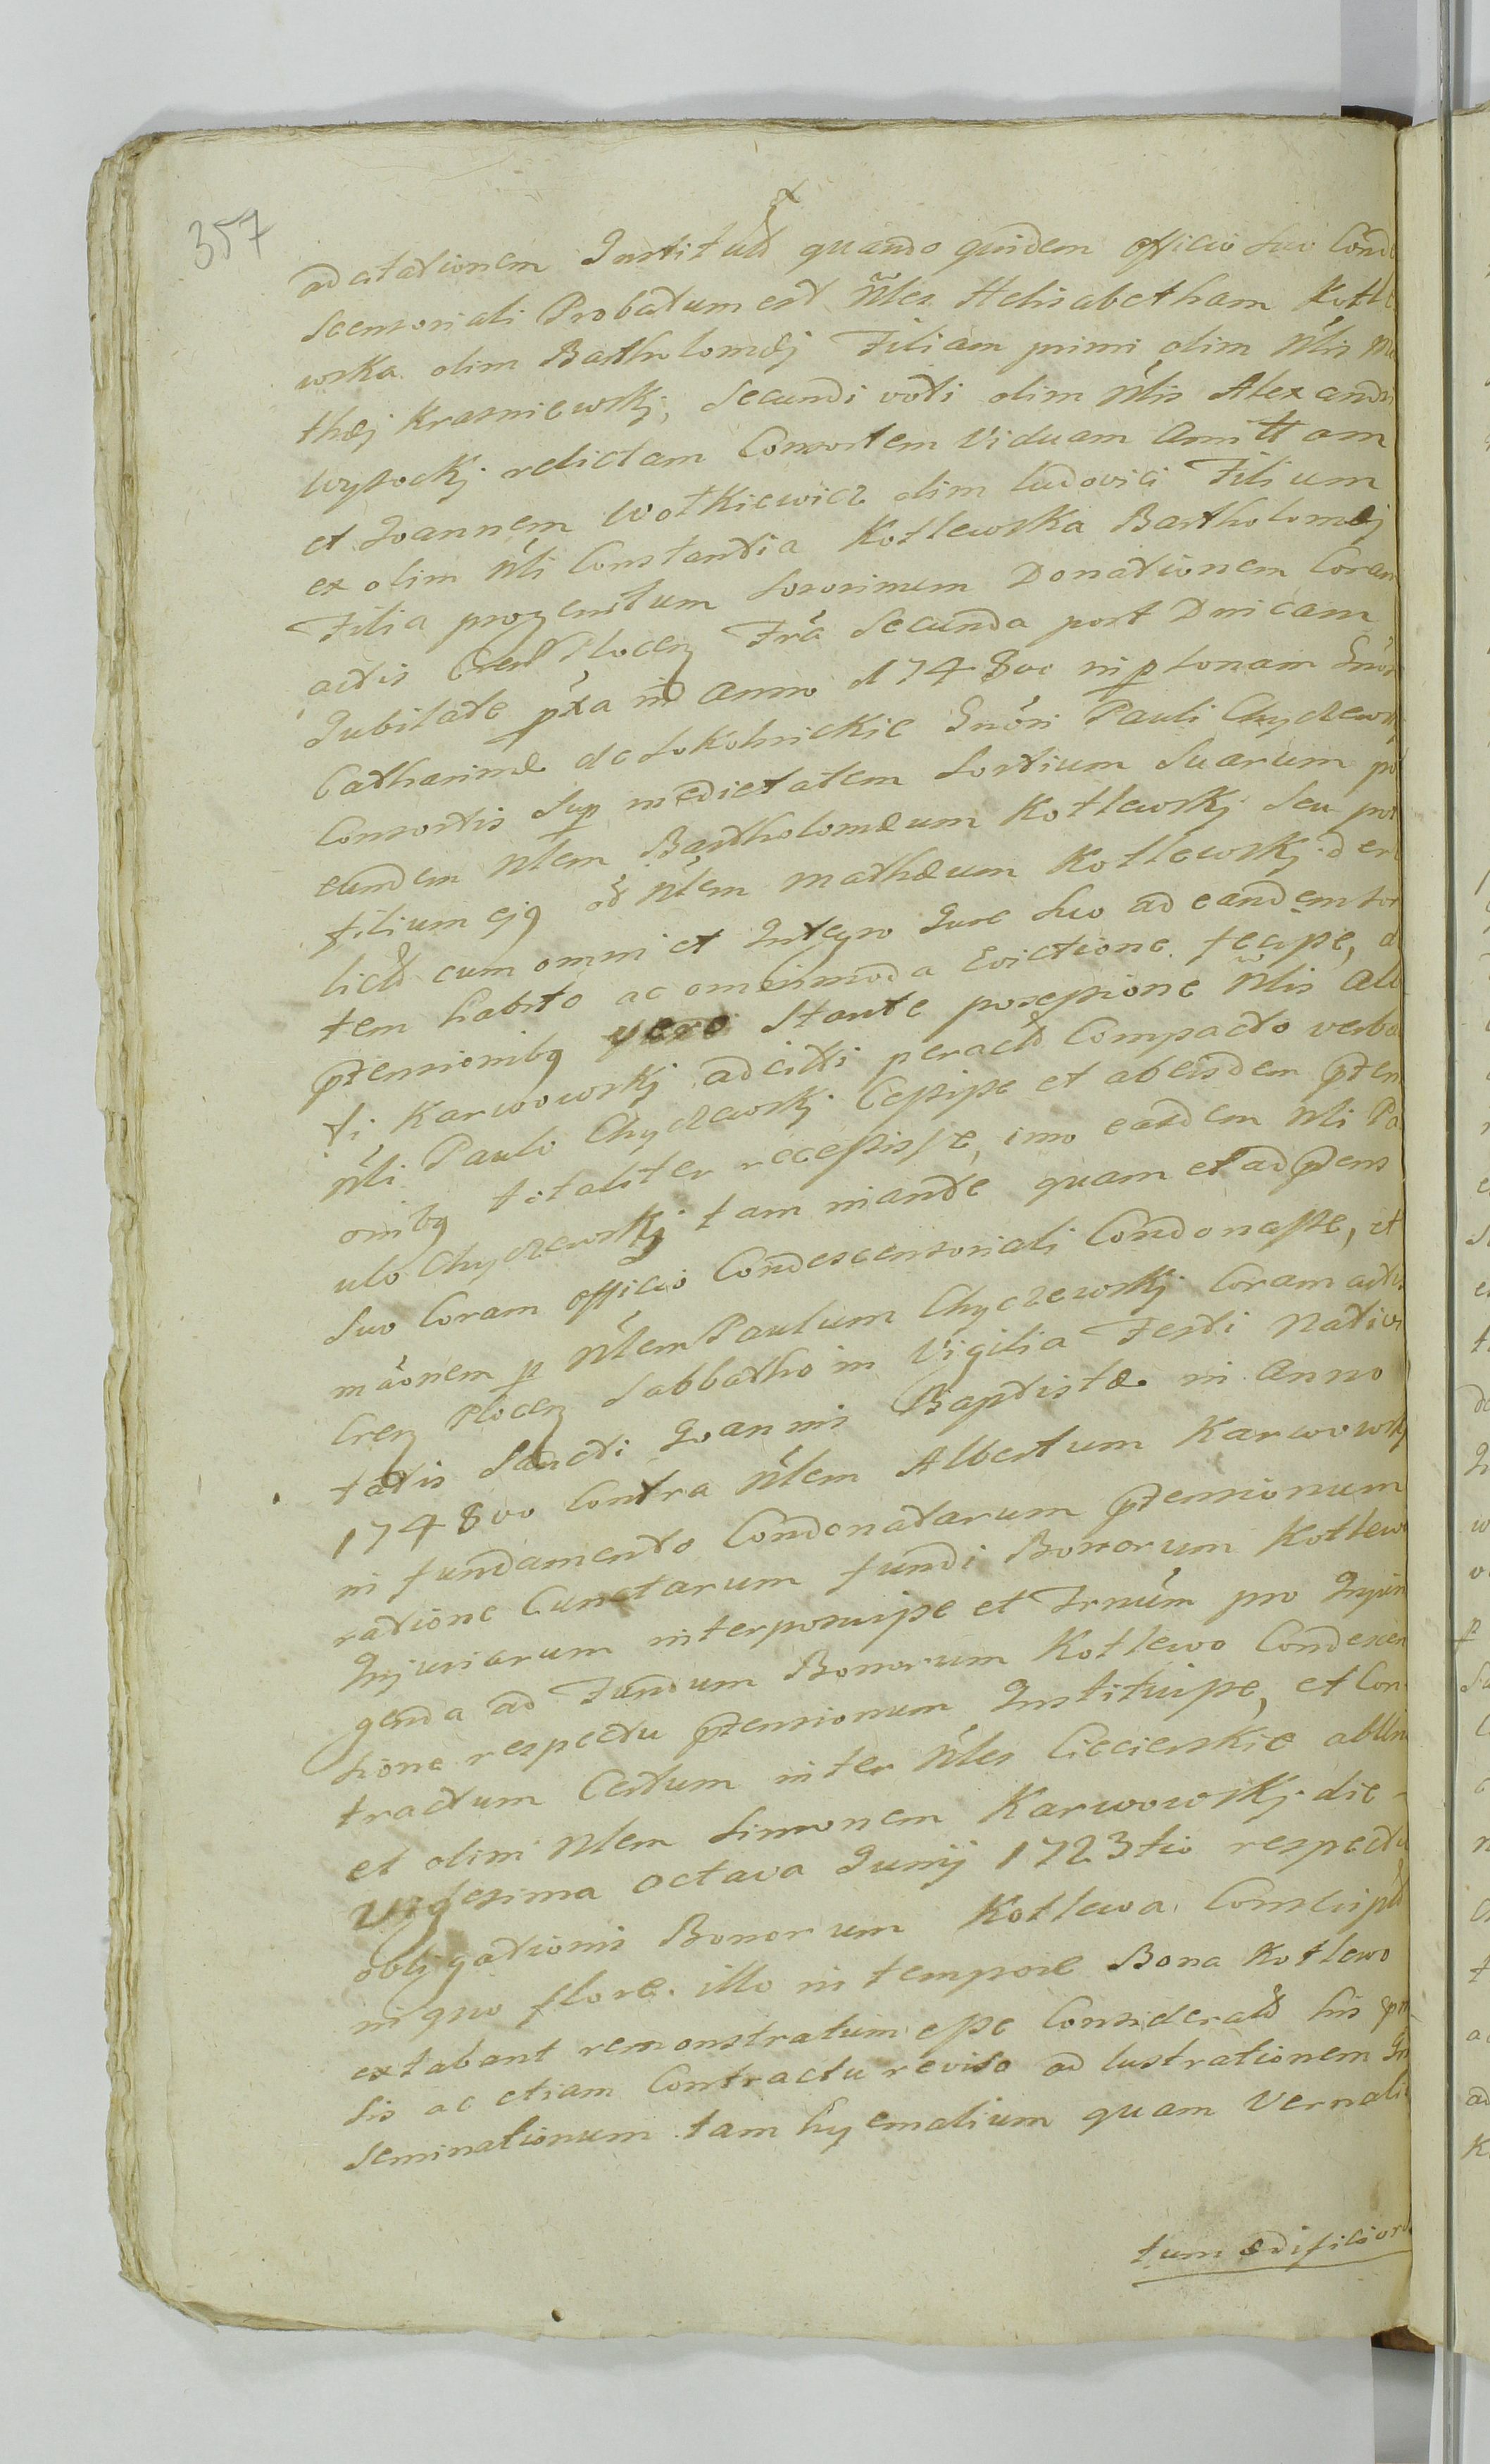 357
ad citationem Institut quando quidem officio suo Conde
scensoriali Probatum est Nles Helisabetham Kotle
wska olim Bartholomæj Filiam primi olim Nlis Ma
thæj Krasniewskj, secundi voti olim Nlis Alexandri
Wysockj relictam Consortem Viduam Amittam
et Joannem Wotkiewicz olim Ludovici Filium
ex olim Nli Constantia Kotlewska Bartholomæj
Filia progenitum Sororinum Donationem Coram
actis Plocen Fra Secunda post Dnicam
Jubilate pxa in Anno 1748vo in psonam Gnosæ
Catharinæ de Sokolnickie Gnosi Pauli Chyczewskj
Consortis Sup medietatem Sortium Suarum p
eundem Nlem Bartholomæum Kotlewskj seu po
filium ejq Nlem Mathæum Kotlewskj dere
lict cum omni et Integro Jure Suo ad eandem Sor
tem habito ac omnimoda Evictione fecisse, d
ptensionibq vero Stante possessione Nlis Alb
ti Karwowskj adcitti peract Compacto verba
Nli Paulo Chyczewskj Cessisse et ab eisdem pten
onibq totaliter recessisse, imo easdem Nli Pa
ulo Chyczewskj tam in ante quam et ad ptens
Suo Coram officio Condescensoriali Condonasse, et
maonem p Nlem Paulum Chyczewskj Coram actis
Cren Plocen Sabbatho in Vigilia Festi Nativi
tatis Sancti Joannis Baptistæ in Anno
1748vo Contra Nlem Albertum Karwowskj
in fundamento Condonatarum ptensionum
ratione Cunctarum fundi Bonorum Kotlewo
Injuriarum interposuisse et Trnum pro Injun
genda ad Fundum Bonorum Kotlewo Condescen
sione respectu ptensionum Instituisse, et Con
tractum Certum inter Nles Ciecierskie ab Un
et olim Nlem Simonem Karwowskj die
Vigesima octava Junij 1723tio respectu
obligationis Bonorum Kotlewa Conscript
in quo flore illo in tempore Bona Kotlewo
extabant remonstratum esse Considerat his
sis ac etiam Contractu reviso ad lustrationem In
seminationum tam hyemalium quam Vernali
tum ædificior